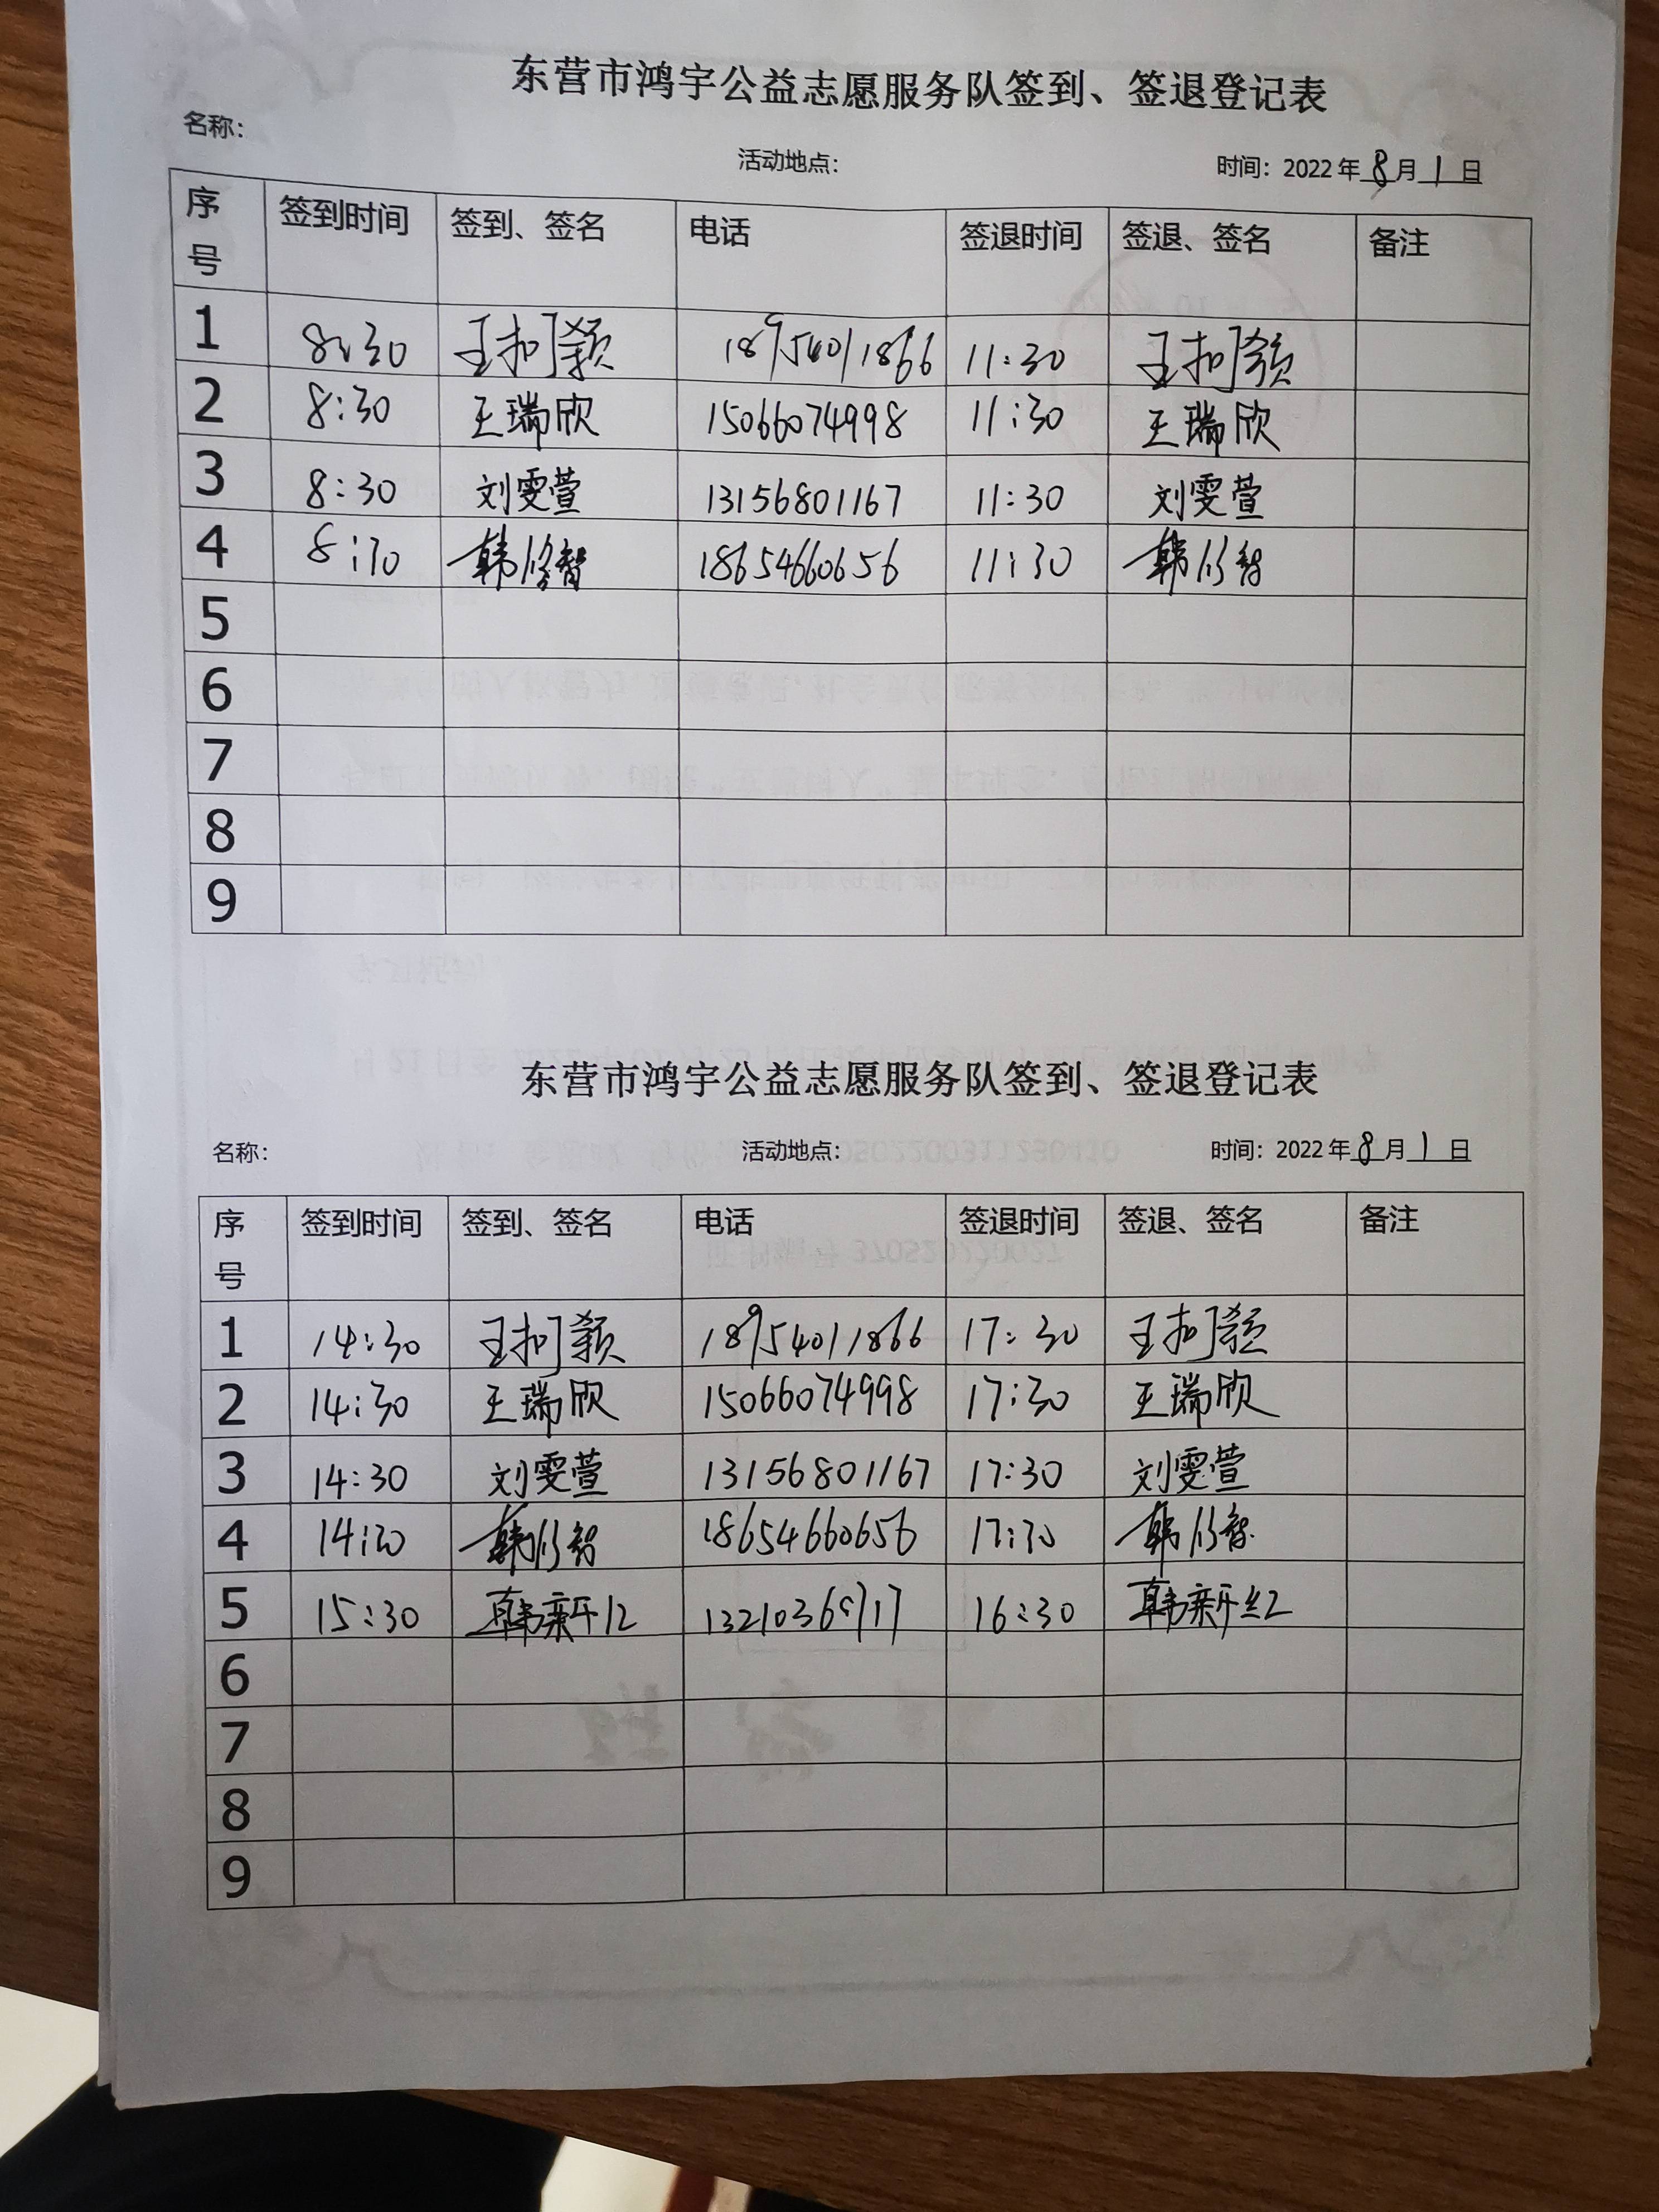 东营市鸿宇公益志愿服务队签到、签退登记表
名称：
活动地点： 时间：2022年8月1日
序号 签到时间 签到、签名 电话 签退时间 签退、签名 备注
1 8:30 王 18954011866 11:30 王
2 8:30 王瑞欣 15066074998 11:30 王瑞欣
3 8:30 刘雯萱 13156801167 11:30 刘雯萱
4 8:30 韩修智 18654660656 11:30 韩修智
5
6
7
8
9
东营市鸿宇公益志愿服务队签到、签退登记表
名称： 活动地点： 时间：2022年8月1日
序号 签到时间 签到、签名 电话 签退时间 签退、签名 备注
1 14:30 王 18954011866 17:30 王
2 14:30 王瑞欣 15066074998 17:30 王瑞欣
3 14:30 刘雯萱 13156801167 17:30 刘雯萱
4 14:30 韩修智 18654660656 17:30 韩修智
5 15:30 韩新红 16:30 韩新红
6
7
8
9